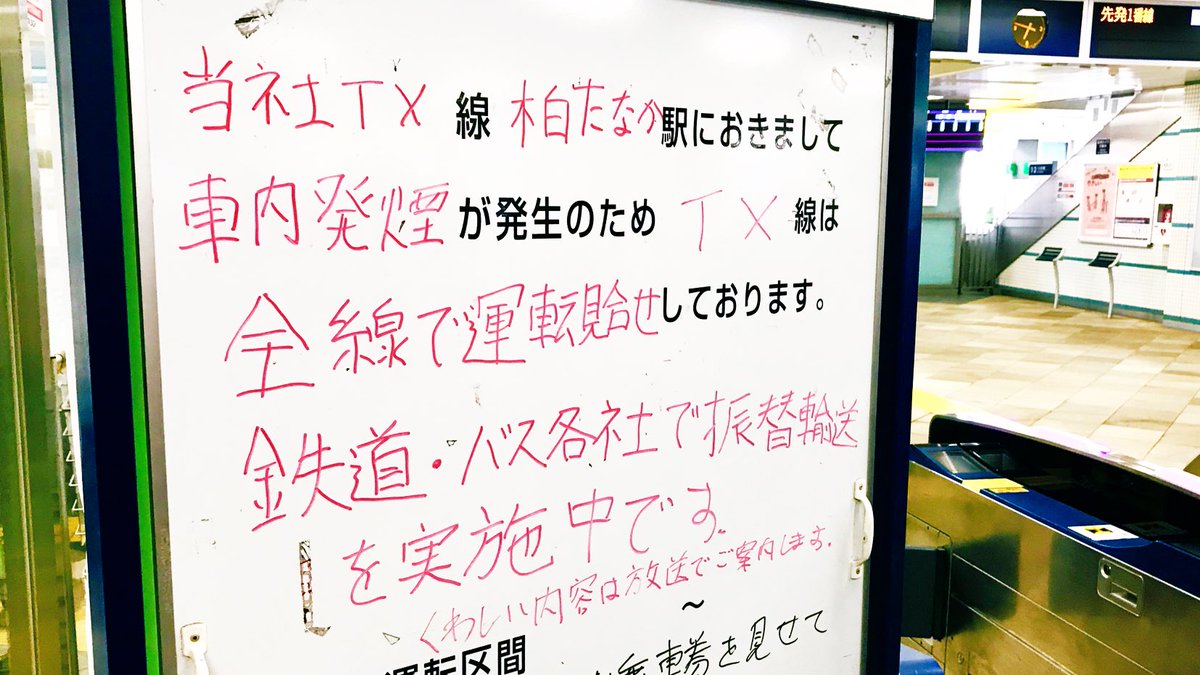 先発1番線
当社TX線柏たなか駅におきまして
車内発煙が発生のためTX線は
全線で運転見合せしております。
鉄道・バス各社で振替輸送
を実施中です。
くわしい内容は放送でご案内します。
～
運転区間
乗車券を見せて